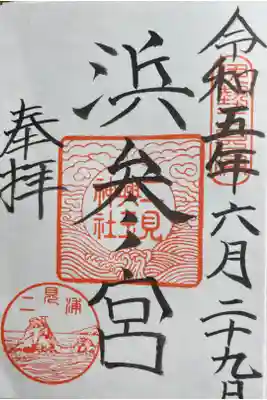 令和五年六月二十九日
浜参宮
奉拝
二見
興玉
神社
二見浦